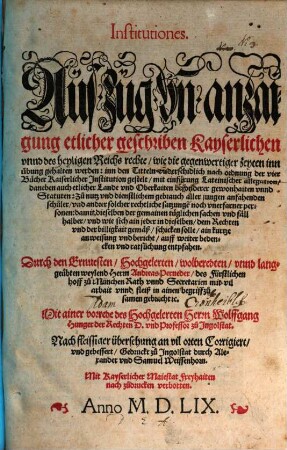 Institutiones.
Auszug vñ anzai
gung etlicher geschriben Kayserlichen
vnnd des heyligen Reichs rechte / wie die gegenwertiger zeyten inn
übung gehalten werden: inn den Titteln vnderschidlich nach ordnung der vier
Bücher Kayserlicher Institution gestelt / mit einfürung Lateinischer allegation /
daneben auch etlicher Lande vnd Oberkaiten besonderer gewonhaiten vnnd
Statuten: Zů nutz vnd dienstlichem gebrauch allen jungen anfahenden
schüler / vnd ander solcher rechtlicher satzung noch vnerfarner per-
sonen: damit dieselben der gemainen täglichen sachen vnd fäll
halber / vnd wie sich ain jeder in dieselben / dem Rechten
vnd der billigkait gemäß / schicken solle / ain kurtze
anweisung vnd bericht / auff wetter beden-
cken vnd ratsůchung empfahen.
Durch den Ernuesten / Hochgelerten / wolberedten / vnnd lang-
geübten weylend Herrn Andreas Perneder / des Fürstlichen
hoff zů München Rath vnnd Secretarien mit vil
arbait vnnd fleiß in ainen begriff zů-
samen gebracht ec.
Mit ainer vorrede des Hochgelerten Herrn Wolffgang
Hunger der Rechten D. vnd Professor zů Ingolstat.
Nach fleissiger übersehung an vil orten Corrigiert /
vnd gebessert / Gedruckt zů Ingolstat durch Ale-
xander vnd Samuel Weissenhorn.
Mit Kayserlicher Maiestat Freyhaiten
nach zůdrucken verbotten.
Anno M. D. LIX.